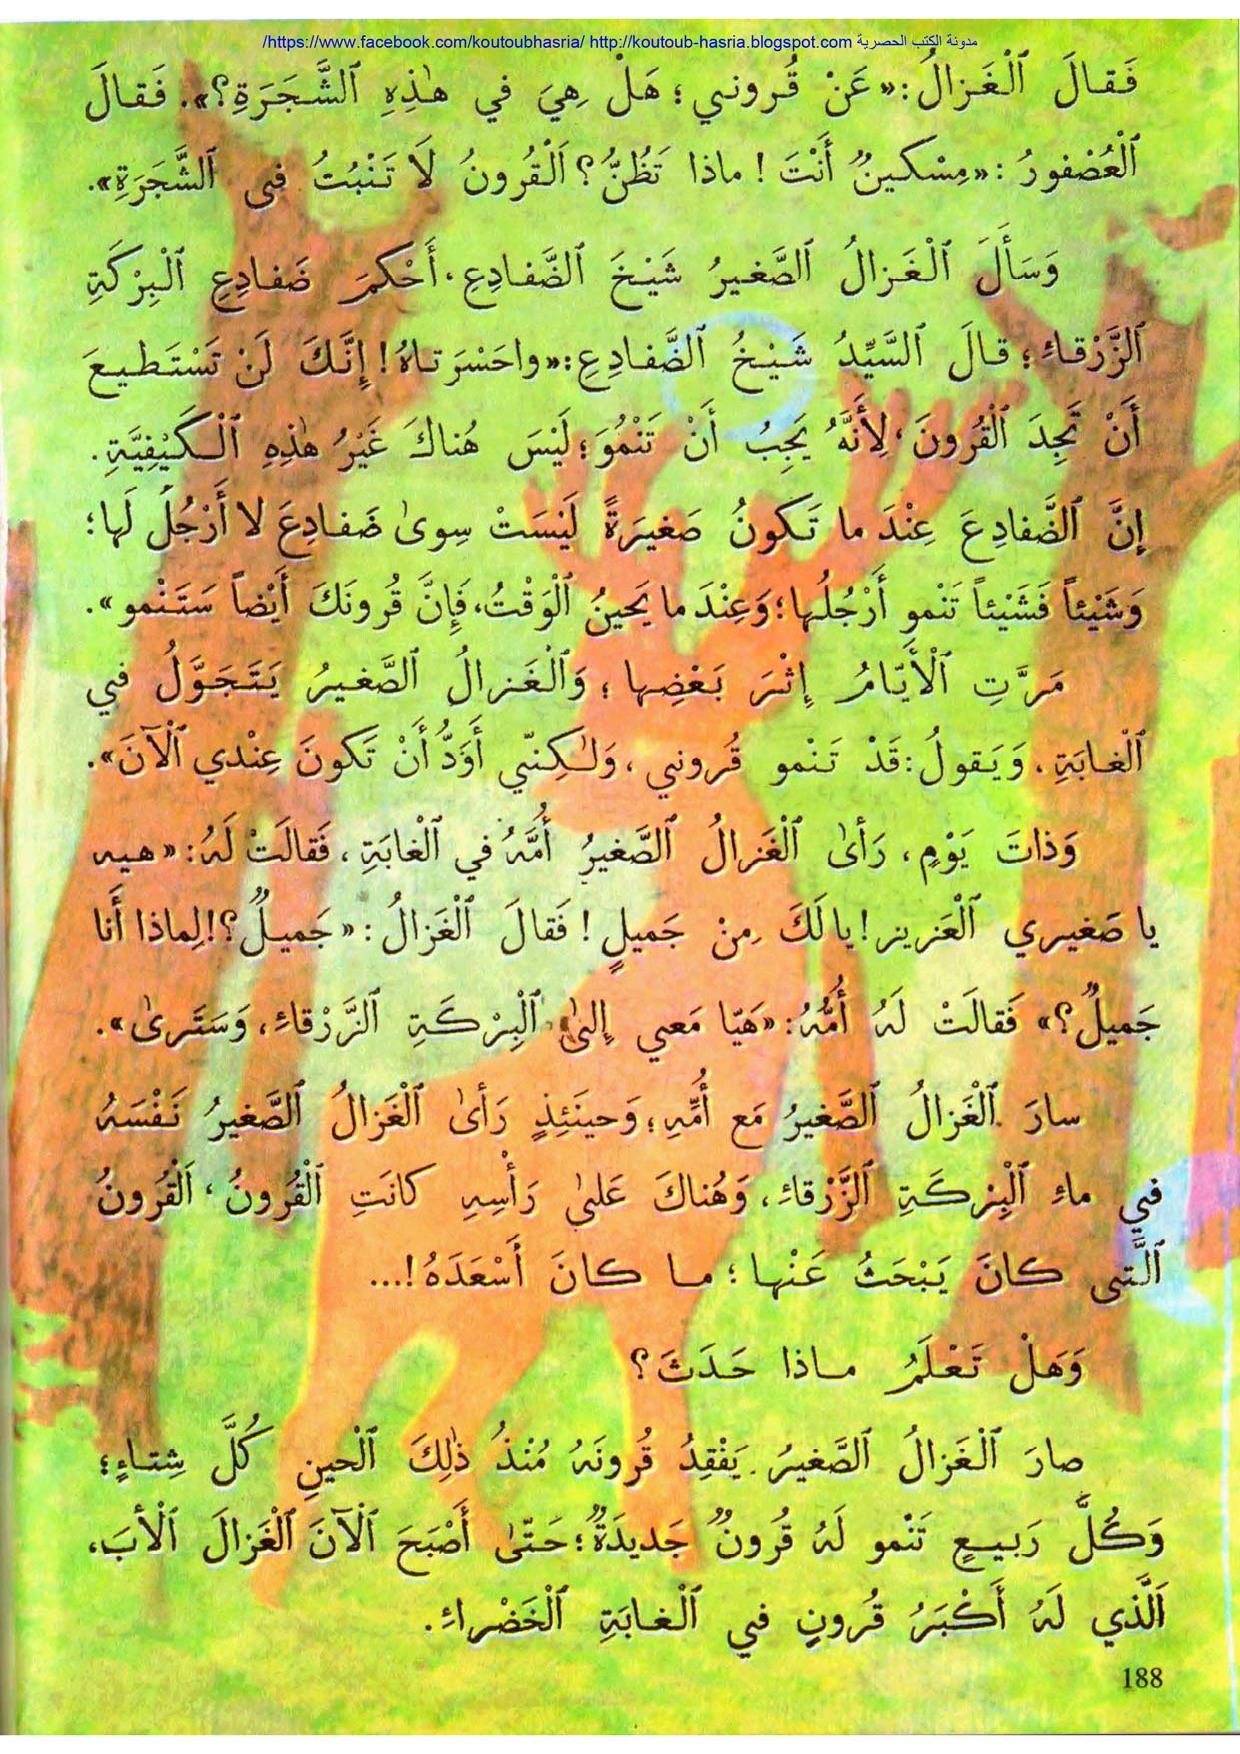 مدونة الكتب الحصرية https://www.facebook.com/koutoubhasria/ http://koutoub-hasria.blogspot.com/
فَقالَ ٱلْغَزالُ: «عَنْ قُروني؛ هَلْ هِيَ في هٰذِهِ ٱلشَّجَرَةِ؟». فَقالَ
ٱلْعُصْفورُ: «مِسْكينٌ أَنْتَ! ماذا تَظُنُّ؟ اَلْقُرونُ لَا تَنْبُتُ فى ٱلشَّجَرَةِ».
وَسَأَلَ ٱلْغَزالُ ٱلصَّغيرُ شَيْخَ ٱلضَّفادِعِ، أَحْكَمَ ضَفادِعِ ٱلْبِرْكَةِ
ٱلزَّرْقاءِ؛ قالَ ٱلسَّيِّدُ شَيْخُ ٱلضَّفادِعِ: «واحَسْرَتاهُ! إِنَّكَ لَنْ تَسْتَطيعَ
أَنْ تَجِدَ ٱلْقُرونَ، لِأَنَّهُ يَجِبُ أَنْ تَنْمُوَ؛ لَيْسَ هُناكَ غَيْرُ هٰذِهِ ٱلْكَيْفِيَّةِ.
إِنَّ ٱلضَّفادِعَ عِنْدَ ما تَكونُ صَغيرَةً لَيْسَتْ سِوىٰ ضَفادِعَ لا أَرْجُلَ لَها؛
وَشَيْئاً فَشَيْئاً تَنْمو أَرْجُلُها؛ وَعِنْدَ ما يَحينُ ٱلْوَقْتُ، فَإِنَّ قُرونَكَ أَيْضاً سَتَنْمو».
مَرَّتِ ٱلْأَيّامُ إِثْرَ بَعْضِها؛ وَٱلْغَزالُ ٱلصَّغيرُ يَتَجَوَّلُ في
ٱلْغابَةِ، وَيَقولُ: قَدْ تَنْمو قُروني، وَلٰكِنّي أَوَدُّ أَنْ تَكونَ عِنْدي ٱلْآنَ».
وَذاتَ يَوْمٍ، رَأىٰ ٱلْغَزالُ ٱلصَّغيرُ أُمَّهُ في ٱلْغابَةِ، فَقالَتْ لَهُ: «هيه
يا صَغيري ٱلْعَزيز! يا لَكَ مِنْ جَميلٍ! فَقالَ ٱلْغَزالُ: «جَميلٌ؟! لِماذا أَنا
جَميلٌ؟» فَقالَتْ لَهُ أُمُّهُ: «هَيّا مَعي إِلىٰ ٱلْبِرْكَةِ ٱلزَّرْقاءِ، وَسَتَرىٰ».
سارَ ٱلْغَزالُ ٱلصَّغيرُ مَع أُمِّهِ؛ وَحينَئِذٍ رَأىٰ ٱلْغَزالُ ٱلصَّغيرُ نَفْسَهُ
في ماءِ ٱلْبِرْكَةِ ٱلزَّرْقاءِ، وَهُناكَ عَلىٰ رَأْسِهِ كانَتِ ٱلْقُرونُ، اَلْقُرونُ
ٱلَّتى كانَ يَبْحَثُ عَنْها؛ ما كانَ أَسْعَدَهُ!...
وَهَلْ تَعْلَمُ ماذا حَدَثَ؟
صارَ ٱلْغَزالُ ٱلصَّغيرُ يَفْقِدُ قُرونَهُ مُنْذُ ذٰلِكَ ٱلْحينِ كُلَّ شِتاءٍ؛
وَكُلَّ رَبيعٍ تَنْمو لَهُ قُرونٌ جَديدَةٌ؛ حَتّىٰ أَصْبَحَ ٱلْآنَ ٱلْغَزالَ ٱلْأَبَ،
اَلَّذي لَهُ أَكْبَرُ قُرونٍ في ٱلْغابَةِ ٱلْخَضْراءِ.
188